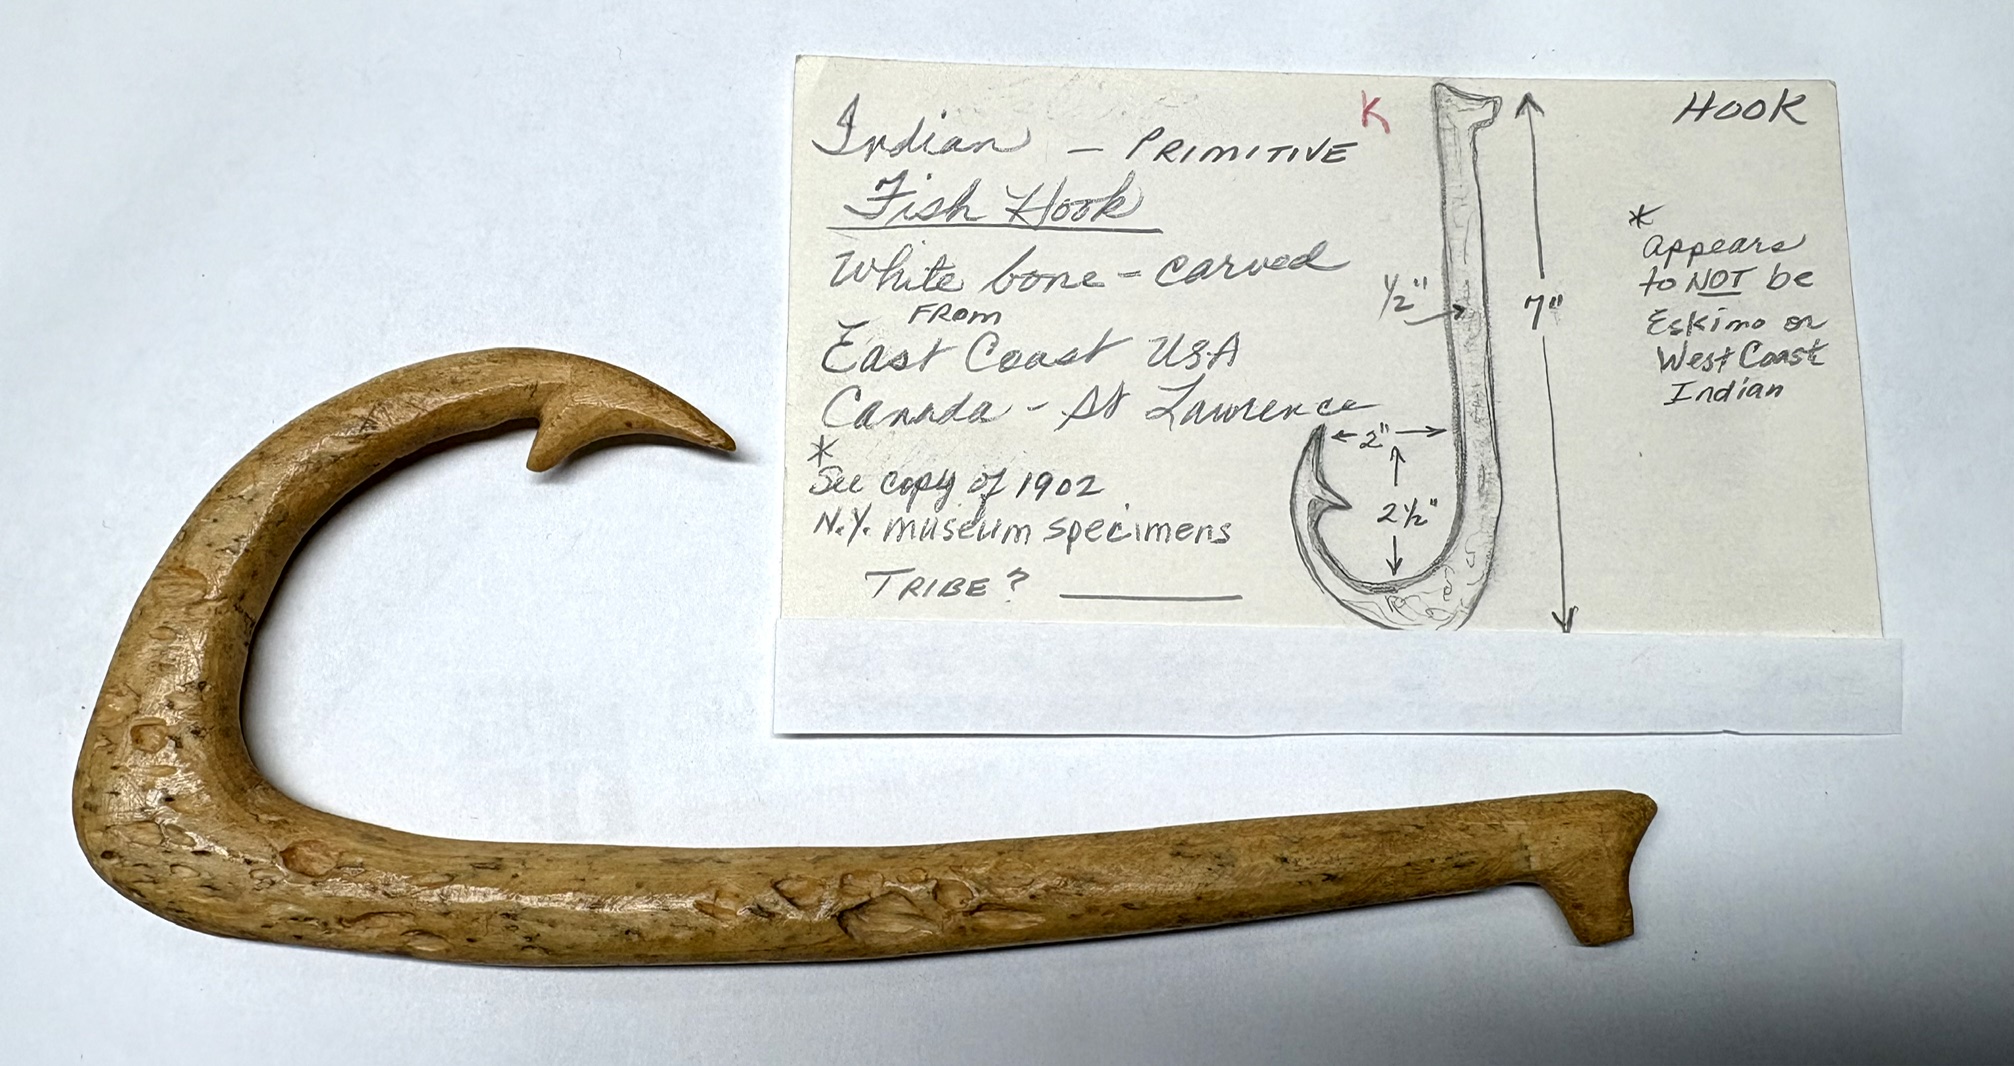 Indian – PRIMITIVE
Fish Hook
White bone – carved
FROM
East Coast USA
Canada – St Lawrence
*
See copy of 1902
N.Y. museum specimens
TRIBE?
K
1/2"
2"
2 1/2"
7"
HOOK
*
Appears
to NOT be
Eskimo or
West Coast
Indian